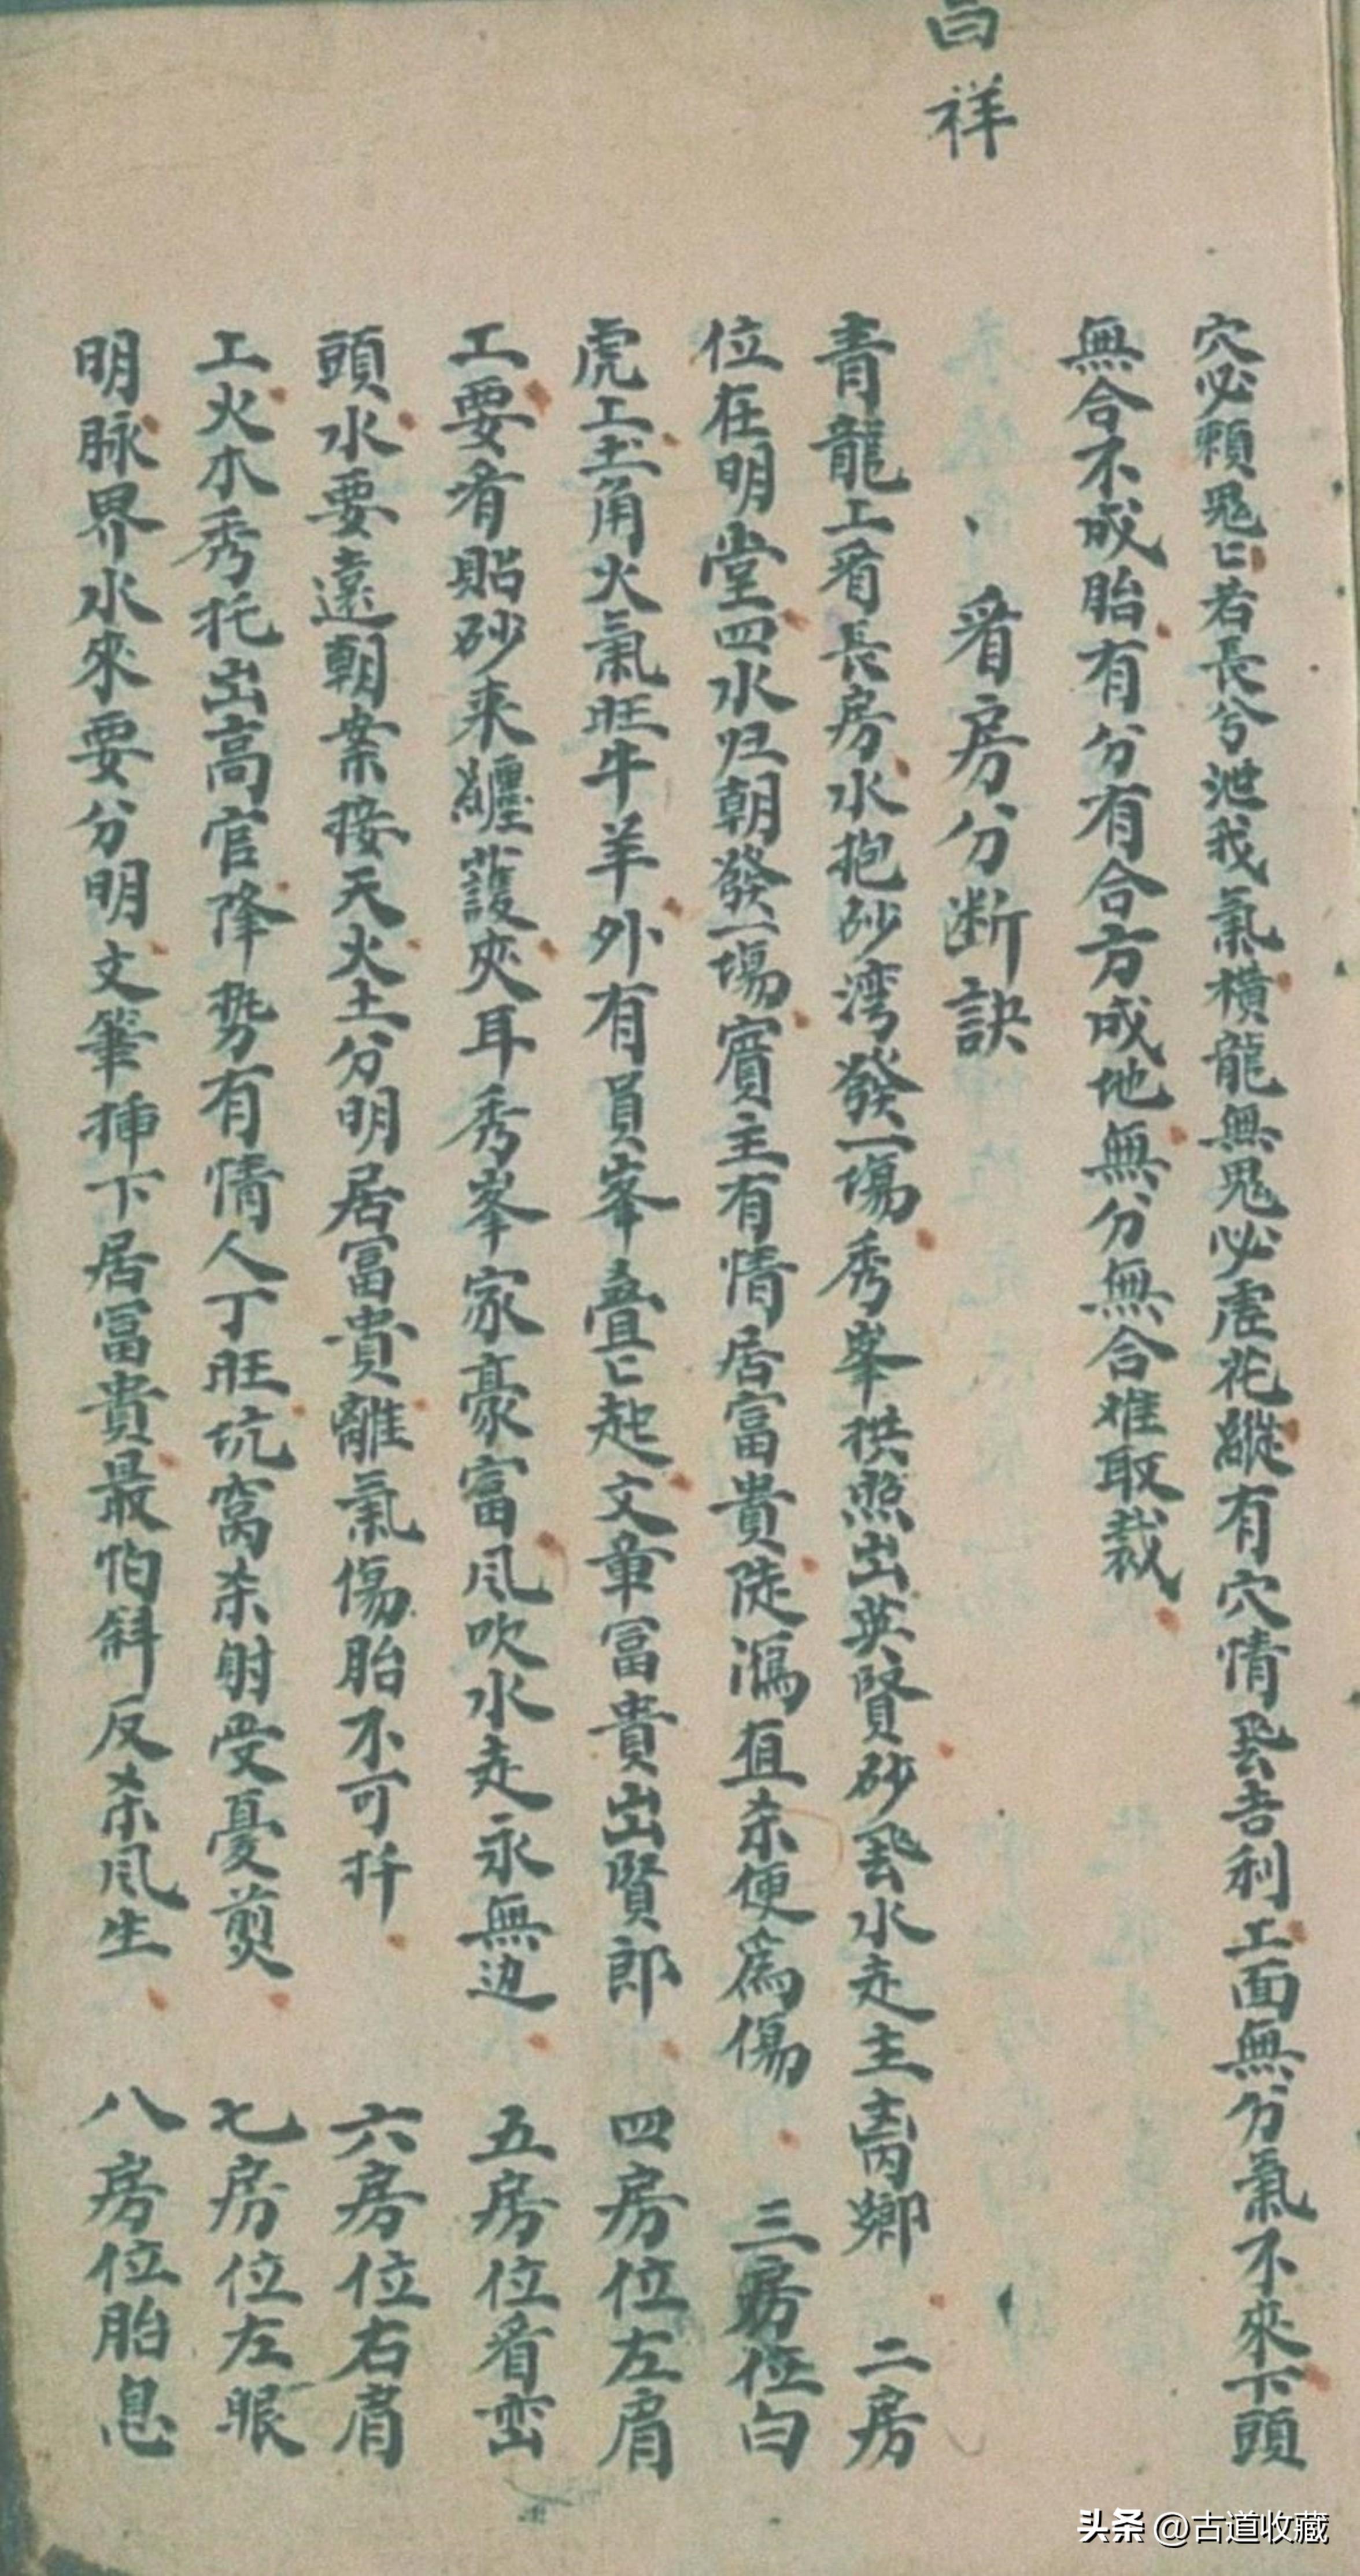 白祥
穴必賴鬼匕若長兮泄我氣橫龍無鬼必虛花縱有穴情吉利工面無分氣不來下頭
無合不成胎有分有合方成地無分無合难取裁
、看房分断訣
青龍工看長房水抱砂湾發一塲秀峯拱照出英賢砂飛水走主离鄉 二房
位在明堂四水归朝發一塲賓主有情居富貴陡瀉直杀便為傷 三房位白
虎工土角火氣旺牛羊外有員峯叠匕起文章冨貴出賢郎 四房位左肩
工要看貼砂来纏護夾耳秀峯家豪富风吹水走永無边 五房位看峦
頭水要遠朝案接天火土分明居冨貴離氣傷胎不可扦 六房位右肩
工火木秀托出高官降势有情人丁旺坑窝杀射受憂煎 七房位左眼
明脉界水來要分明文筆挿下居冨貴最怕斜反杀风生 八房位胎息
头条 @古道收藏